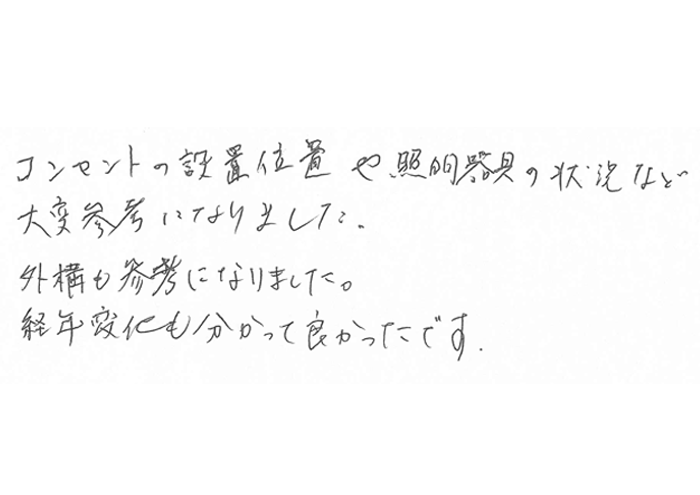 コンセントの設置位置や照明器具の状況など
大変参考になりました.
外構も参考になりました。
経年変化も分かって良かったです.